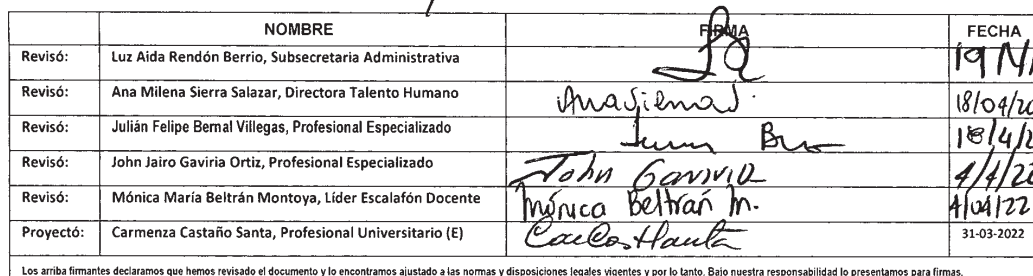 NOMBRE FIRMA FECHA
Revisó: Luz Aida Rendón Berrio, Subsecretaria Administrativa
Revisó: Ana Milena Sierra Salazar, Directora Talento Humano AnaSierraS. 18/04/20
Revisó: Julián Felipe Bernal Villegas, Profesional Especializado 18/4/2
Revisó: John Jairo Gaviria Ortiz, Profesional Especializado John Gaviria 4/4/22
Revisó: Mónica María Beltrán Montoya, Líder Escalafón Docente Mónica Beltrán M. 4/04/22
Proyectó: Carmenza Castaño Santa, Profesional Universitario (E) 31-03-2022
Los arriba firmantes declaramos que hemos revisado el documento y lo encontramos ajustado a las normas y disposiciones legales vigentes y por lo tanto. Bajo nuestra responsabilidad lo presentamos para firmas.